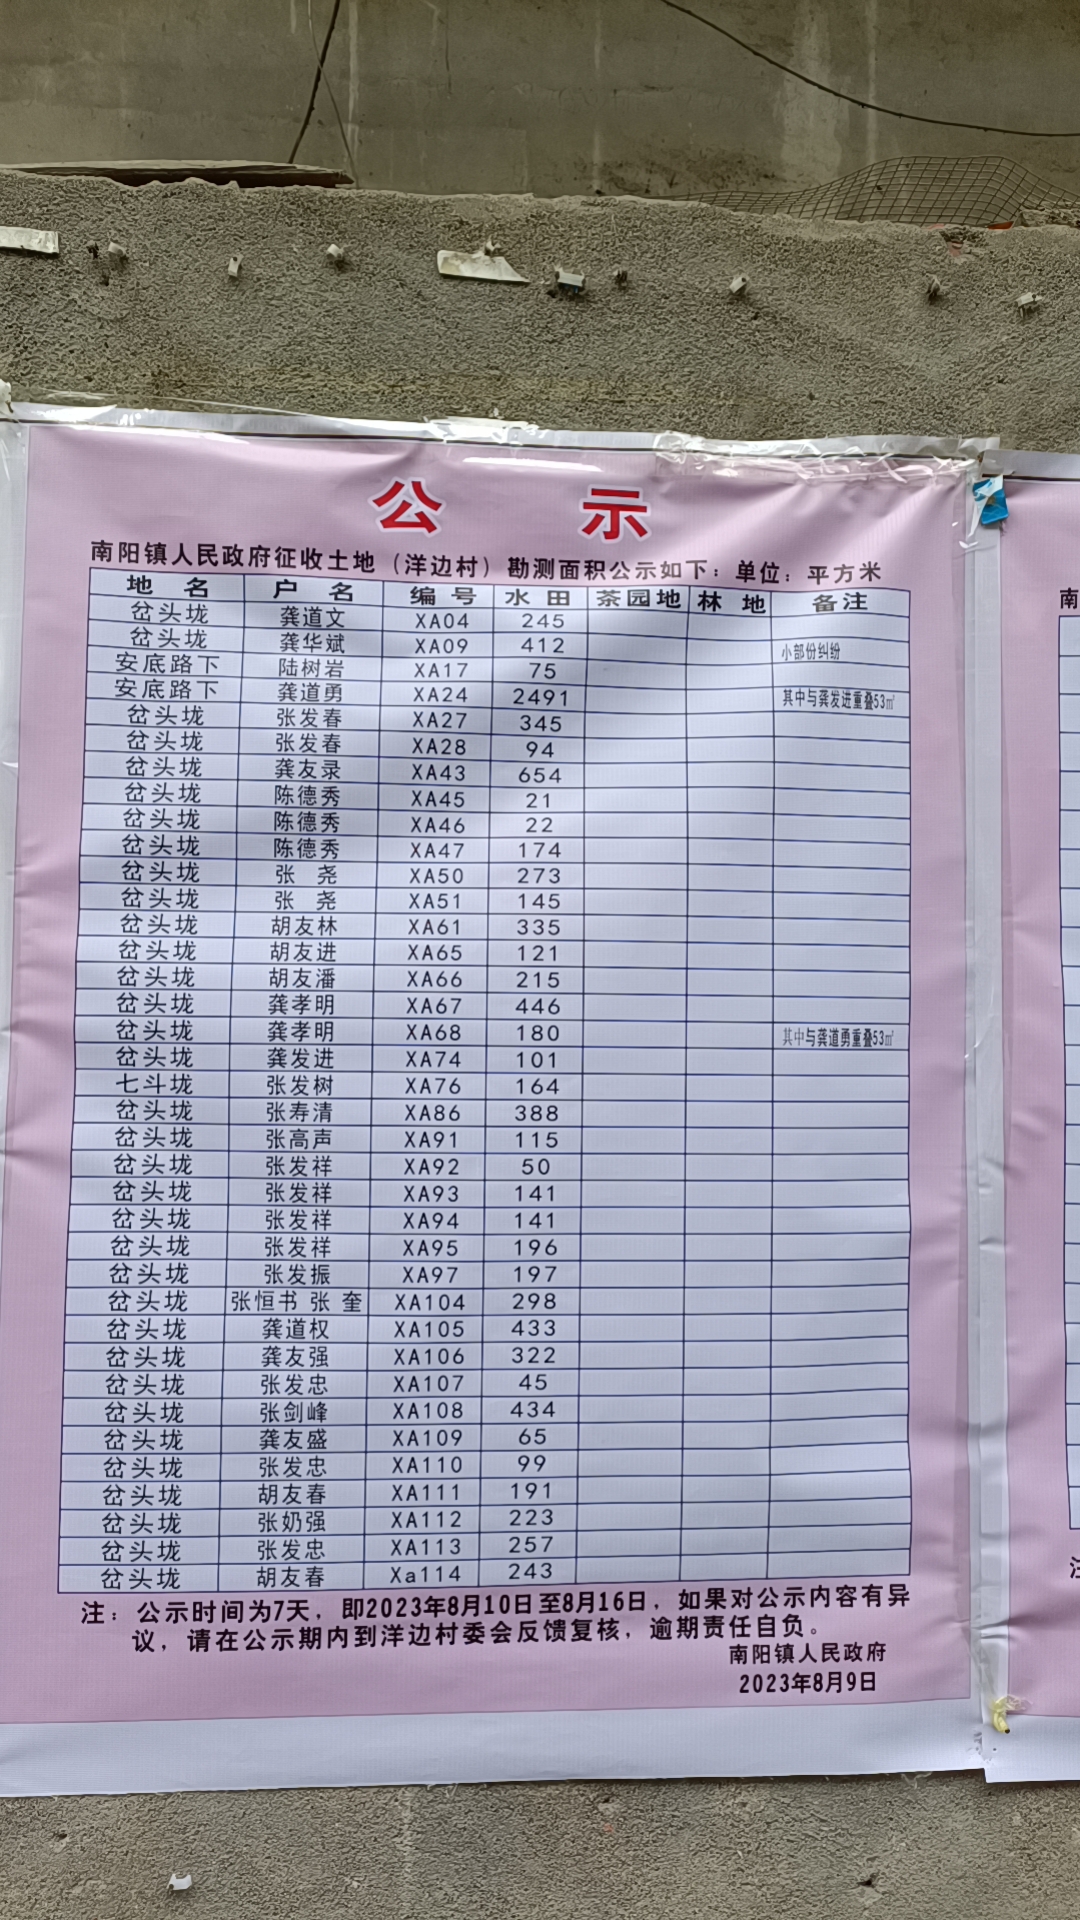 公 示
南阳镇人民政府征收土地（洋边村）勘测面积公示如下：单位：平方米
地 名 户 名 编 号 水 田 茶园地 林 地 备注
岔头垅 龚道文 XA04 245
岔头垅 龚华斌 XA09 412 小部份纠纷
安底路下 陆树岩 XA17 75
安底路下 龚道勇 XA24 2491 其中与龚发进重叠53㎡
岔头垅 张发春 XA27 345
岔头垅 张发春 XA28 94
岔头垅 龚友录 XA43 654
岔头垅 陈德秀 XA45 21
岔头垅 陈德秀 XA46 22
岔头垅 陈德秀 XA47 174
岔头垅 张 尧 XA50 273
岔头垅 张 尧 XA51 145
岔头垅 胡友林 XA61 335
岔头垅 胡友进 XA65 121
岔头垅 胡友潘 XA66 215
岔头垅 龚孝明 XA67 446
岔头垅 龚孝明 XA68 180 其中与龚道勇重叠53㎡
岔头垅 龚发进 XA74 101
七斗垅 张发树 XA76 164
岔头垅 张寿清 XA86 388
岔头垅 张高声 XA91 115
岔头垅 张发祥 XA92 50
岔头垅 张发祥 XA93 141
岔头垅 张发祥 XA94 141
岔头垅 张发祥 XA95 196
岔头垅 张发振 XA97 197
岔头垅 张恒书 张 奎 XA104 298
岔头垅 龚道权 XA105 433
岔头垅 龚友强 XA106 322
岔头垅 张发忠 XA107 45
岔头垅 张剑峰 XA108 434
岔头垅 龚友盛 XA109 65
岔头垅 张发忠 XA110 99
岔头垅 胡友春 XA111 191
岔头垅 张奶强 XA112 223
岔头垅 张发忠 XA113 257
岔头垅 胡友春 Xa114 243
注：公示时间为7天，即2023年8月10日至8月16日，如果对公示内容有异
议，请在公示期内到洋边村委会反馈复核，逾期责任自负。
南阳镇人民政府
2023年8月9日
南